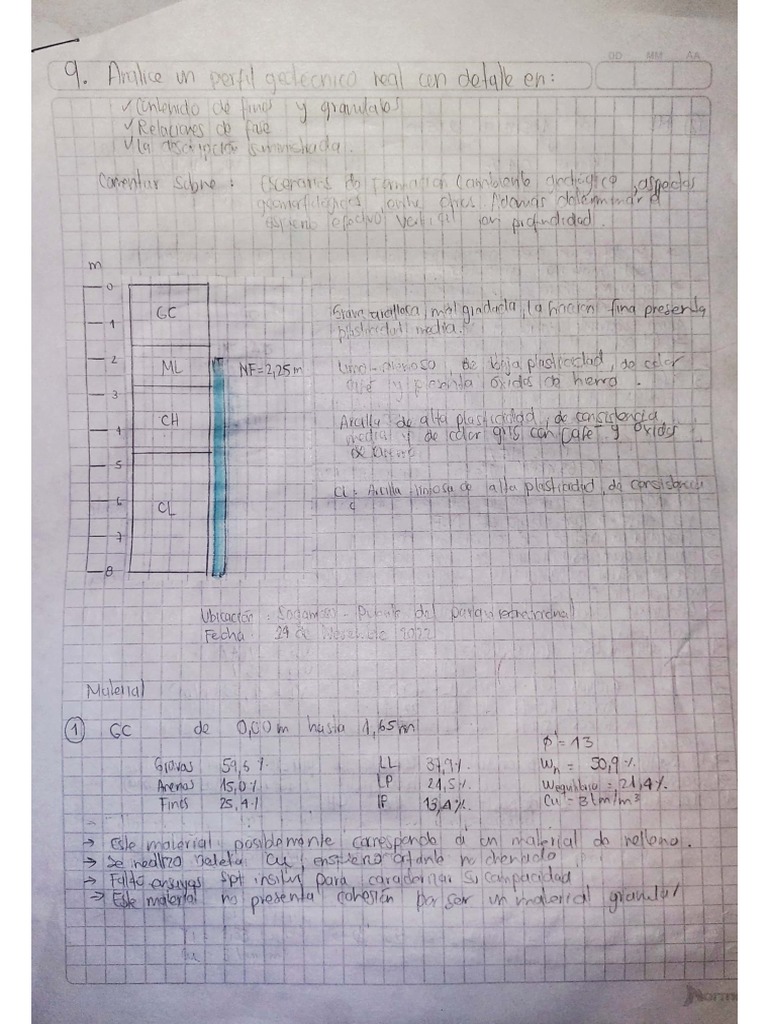 DD MM AA
9. Analice un perfil geotecnico real con detalle en:
✓ Contenido de finos y granulares
✓ Relaciones de fase
✓ La descripción suministrada.
Comentar sobre: Escenarios de formación (ambiente geológico, aspectos
geomorfológicos, entre otros. Además determinar el
esfuerzo efectivo vertical con profundidad.
m
0
GC
Grava arcillosa, mal gradada, la fraccion fina presenta
1
plasticidad media.
2
ML
NF = 2,25 m
Limo de baja plasticidad, de color
café y presenta óxidos de hierro.
3
CH
Arcilla de alta plasticidad, de consistencia
4
media y de color gris con café y óxidos
de
5
CL: Arcilla limosa de alta plasticidad, de consistencia
6
CL
7
8
Ubicación: Sogamoso -
Fecha: 29 de 2022
Material
① GC de 0,00 m hasta 1,65 m
Ø' = 13
Gravas 59,6 % LL 37,9 % Wn = 50,9 %
Arenas 15,0 % LP 24,5 % Wequilibrio = 21,4 %
Fines 25,4 % IP 13,4 % Cu = 3 tm/m³
→ Este material posiblemente corresponde a un material de relleno.
→ Se realizo veleta Cu, ensayeno no drenado
→ Falto ensayos spt insitu para caracterizar su compacidad
→ Este material no presenta cohesión por ser un material granular
Norma